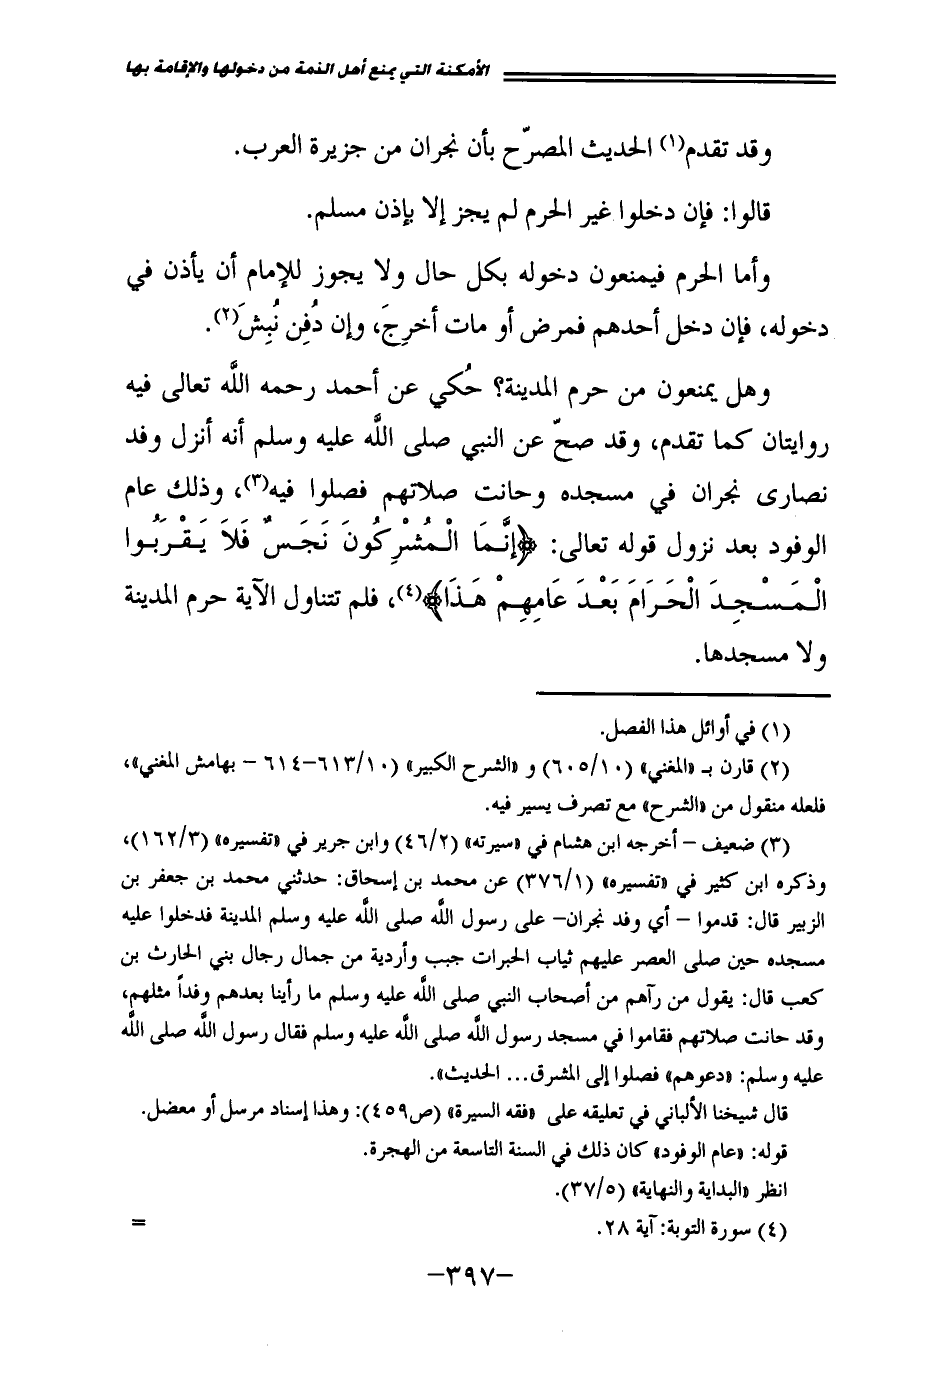 الأمكنة التي يمنع أهل الذمة من دخولها والإقامة بها
وقد تقدم(١) الحديث المصرّح بأن نجران من جزيرة العرب.
قالوا: فإن دخلوا غير الحرم لم يجز إلا بإذن مسلم.
وأما الحرم فيمنعون دخوله بكل حال ولا يجوز للإمام أن يأذن في
دخوله، فإن دخل أحدهم فمرض أو مات أخرِجَ، وإن دُفِن نُبِشَ(٢).
وهل يمنعون من حرم المدينة؟ حُكي عن أحمد رحمه اللَّه تعالى فيه
روايتان كما تقدم، وقد صحّ عن النبي صلى اللَّه عليه وسلم أنه أنزل وفد
نصارى نجران في مسجده وحانت صلاتهم فصلوا فيه(٣)، وذلك عام
الوفود بعد نزول قوله تعالى: ﴿إِنَّمَا الْمُشْرِكُونَ نَجَسٌ فَلاَ يَقْرَبُوا
الْمَسْجِدَ الْحَرَامَ بَعْدَ عَامِهِمْ هَذَا﴾(٤)، فلم تتناول الآية حرم المدينة
ولا مسجدها.
(١) في أوائل هذا الفصل.
(٢) قارن بـ «المغني» (٦٠٥/١٠) و «الشرح الكبير» (٦١٣/١٠-٦١٤ - بهامش المغني»،
فلعله منقول من «الشرح» مع تصرف يسير فيه.
(٣) ضعيف - أخرجه ابن هشام في «سيرته» (٤٦/٢) وابن جرير في «تفسيره» (١٦٢/٣)،
وذكره ابن كثير في «تفسيره» (٣٧٦/١) عن محمد بن إسحاق: حدثني محمد بن جعفر بن
الزبير قال: قدموا - أي وفد نجران- على رسول اللَّه صلى اللَّه عليه وسلم المدينة فدخلوا عليه
مسجده حين صلى العصر عليهم ثياب الحبرات جبب وأردية من جمال رجال بني الحارث بن
كعب قال: يقول من رآهم من أصحاب النبي صلى اللَّه عليه وسلم ما رأينا بعدهم وفداً مثلهم،
وقد حانت صلاتهم فقاموا في مسجد رسول اللَّه صلى اللَّه عليه وسلم فقال رسول اللَّه صلى اللَّه
عليه وسلم: «دعوهم» فصلوا إلى المشرق... الحديث».
قال شيخنا الألباني في تعليقه على «فقه السيرة» (ص٤٥٩): وهذا إسناد مرسل أو معضل.
قوله: «عام الوفود» كان ذلك في السنة التاسعة من الهجرة.
انظر «البداية والنهاية» (٣٧/٥).
(٤) سورة التوبة: آية ٢٨. =
-٣٩٧-